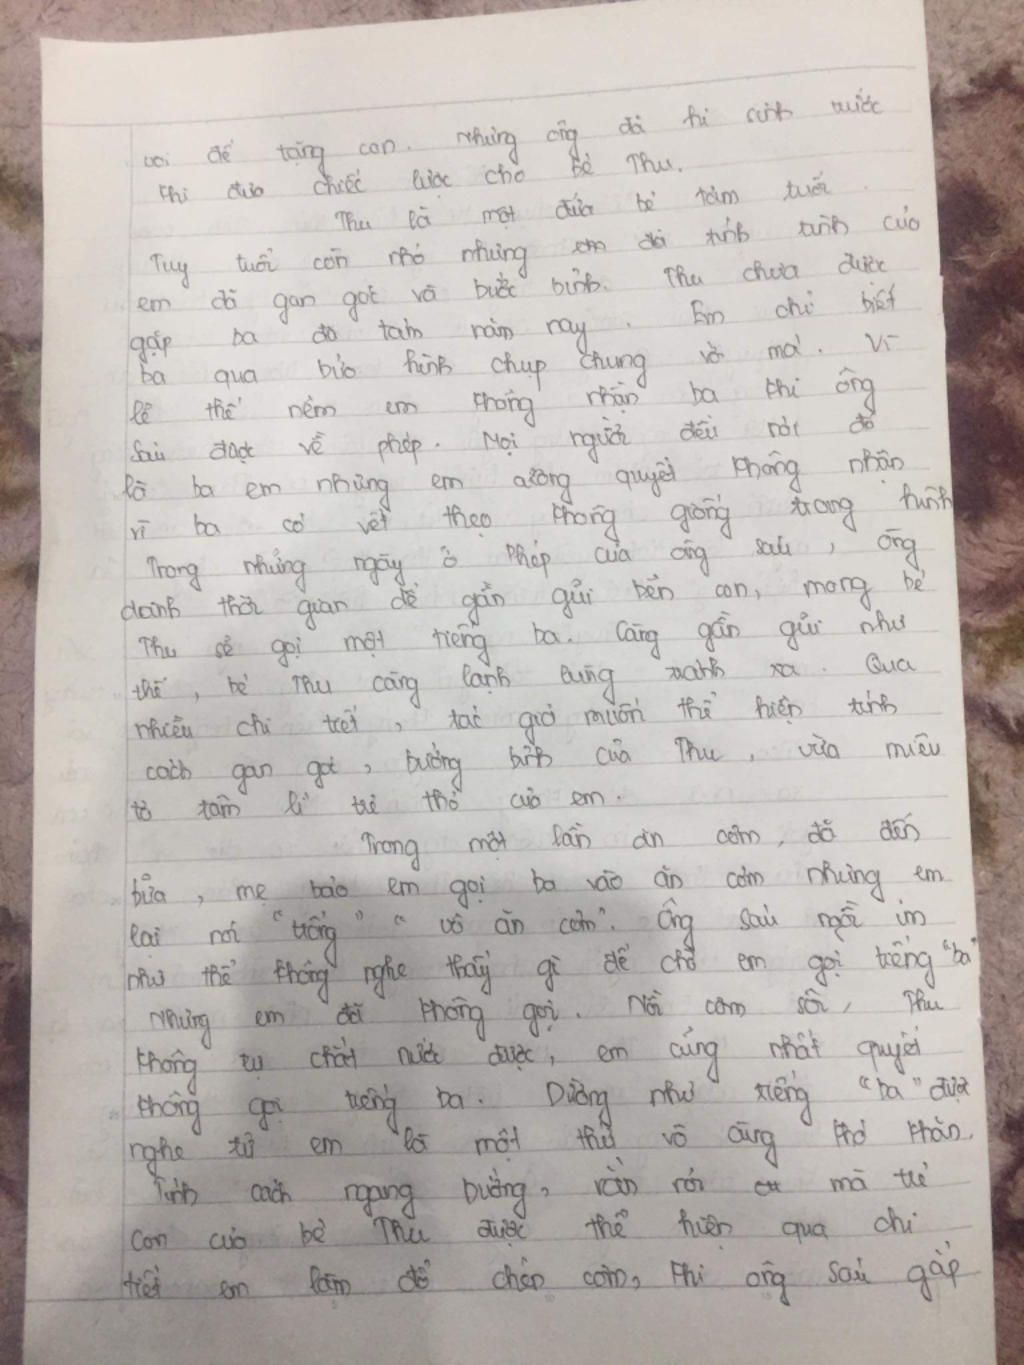 voi để tặng con. Nhưng ông đã hi sinh trước
khi đưa chiếc lược cho bé Thu.
Thu là một đứa bé tám tuổi.
Tuy tuổi còn nhỏ nhưng em đã tính tình của
em đã gan gót và bướt bỉnh. Thu chưa được
gặp ba đã tám năm nay. Em chỉ biết
ba qua bức hình chụp chung với má. Vì
lẽ thế nêm em không nhận ba khi ông
Sáu được về phép. Mọi người đều nói đó
là ba em nhưng em cương quyết không nhận
vì ba có vết thẹo không giống trong hình
Trong những ngày ở phép của ông sáu, ông
dành thời gian để gần gũi bên con, mong bé
Thu sẽ gọi một tiếng ba. Càng gần gũi như
thế, bé Thu càng lạnh lùng xanh xa. Qua
nhiều chi tiết, tác giả muốn thể hiện tính
cách gan gót, bướng bỉnh của Thu, vừa miêu
tả tâm lí trẻ thơ của em.
Trong một lần ăn cơm, đã đến
bữa, mẹ bảo em gọi ba vào ăn cơm nhưng em
lại nói "trống" "vô ăn cơm". Ông sáu ngồi im
như thể không nghe thấy gì để chờ em gọi tiếng "ba"
Nhưng em đã không gọi. Nồi cơm sôi, Thu
không tự chắt nước được, em cũng nhất quyết
không gọi tiếng ba. Dường như tiếng "ba" được
nghe từ em là một thứ vô cùng khó khăn.
Tính cách ngang bướng, rắn rỏi mà trẻ
con của bé Thu được thể hiện qua chi
tiết em làm đổ chén cơm, khi ông sáu gắp